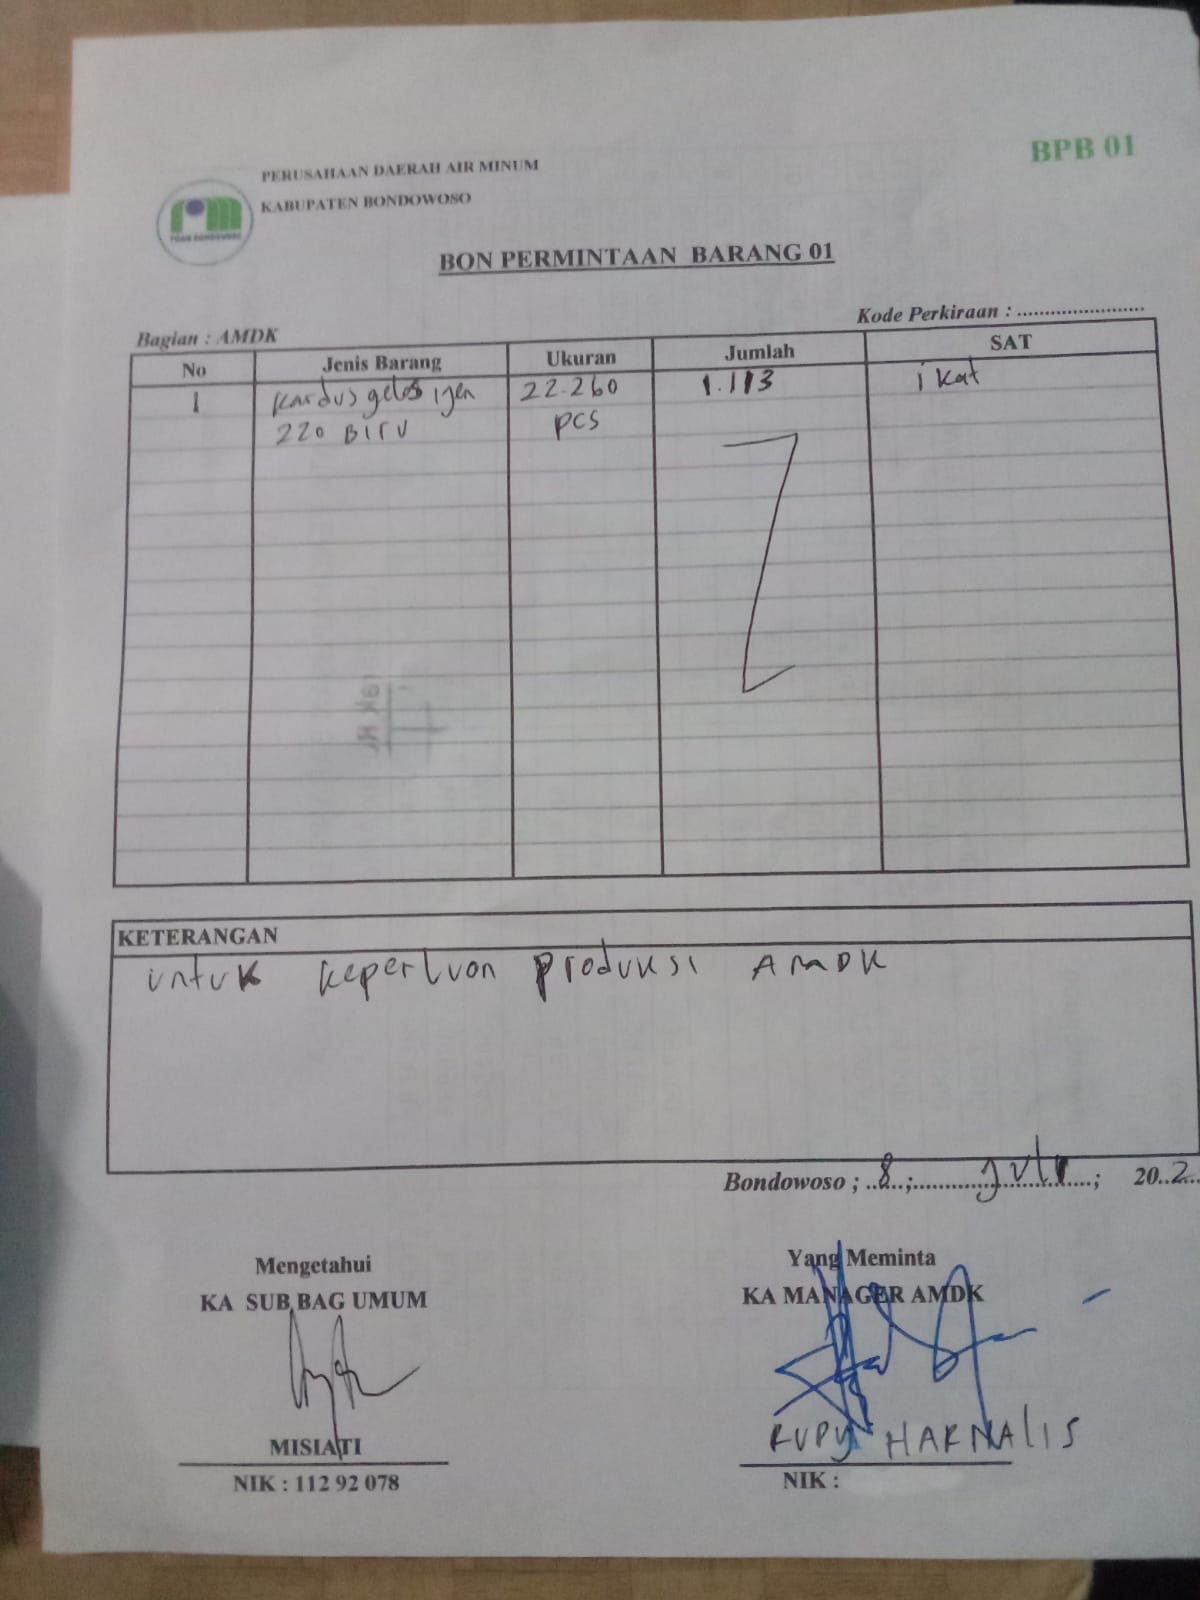 BPB 01
PERUSAHAAN DAERAH AIR MINUM
KABUPATEN BONDOWOSO
BON PERMINTAAN BARANG 01
Kode Perkiraan : ........................
Bagian : AMDK
No Jenis Barang Ukuran Jumlah SAT
1 Kardus gelas ijen 22.260 1.113 ikat
220 BIRU pcs
KETERANGAN
untuk keperluan produksi AMDK
Bondowoso ; ..8..; ...... juli ......; 20..2...
Mengetahui
KA SUB BAG UMUM
MISIATI
NIK : 112 92 078
Yang Meminta
KA MANAGER AMDK
RUDY HARNALIS
NIK :